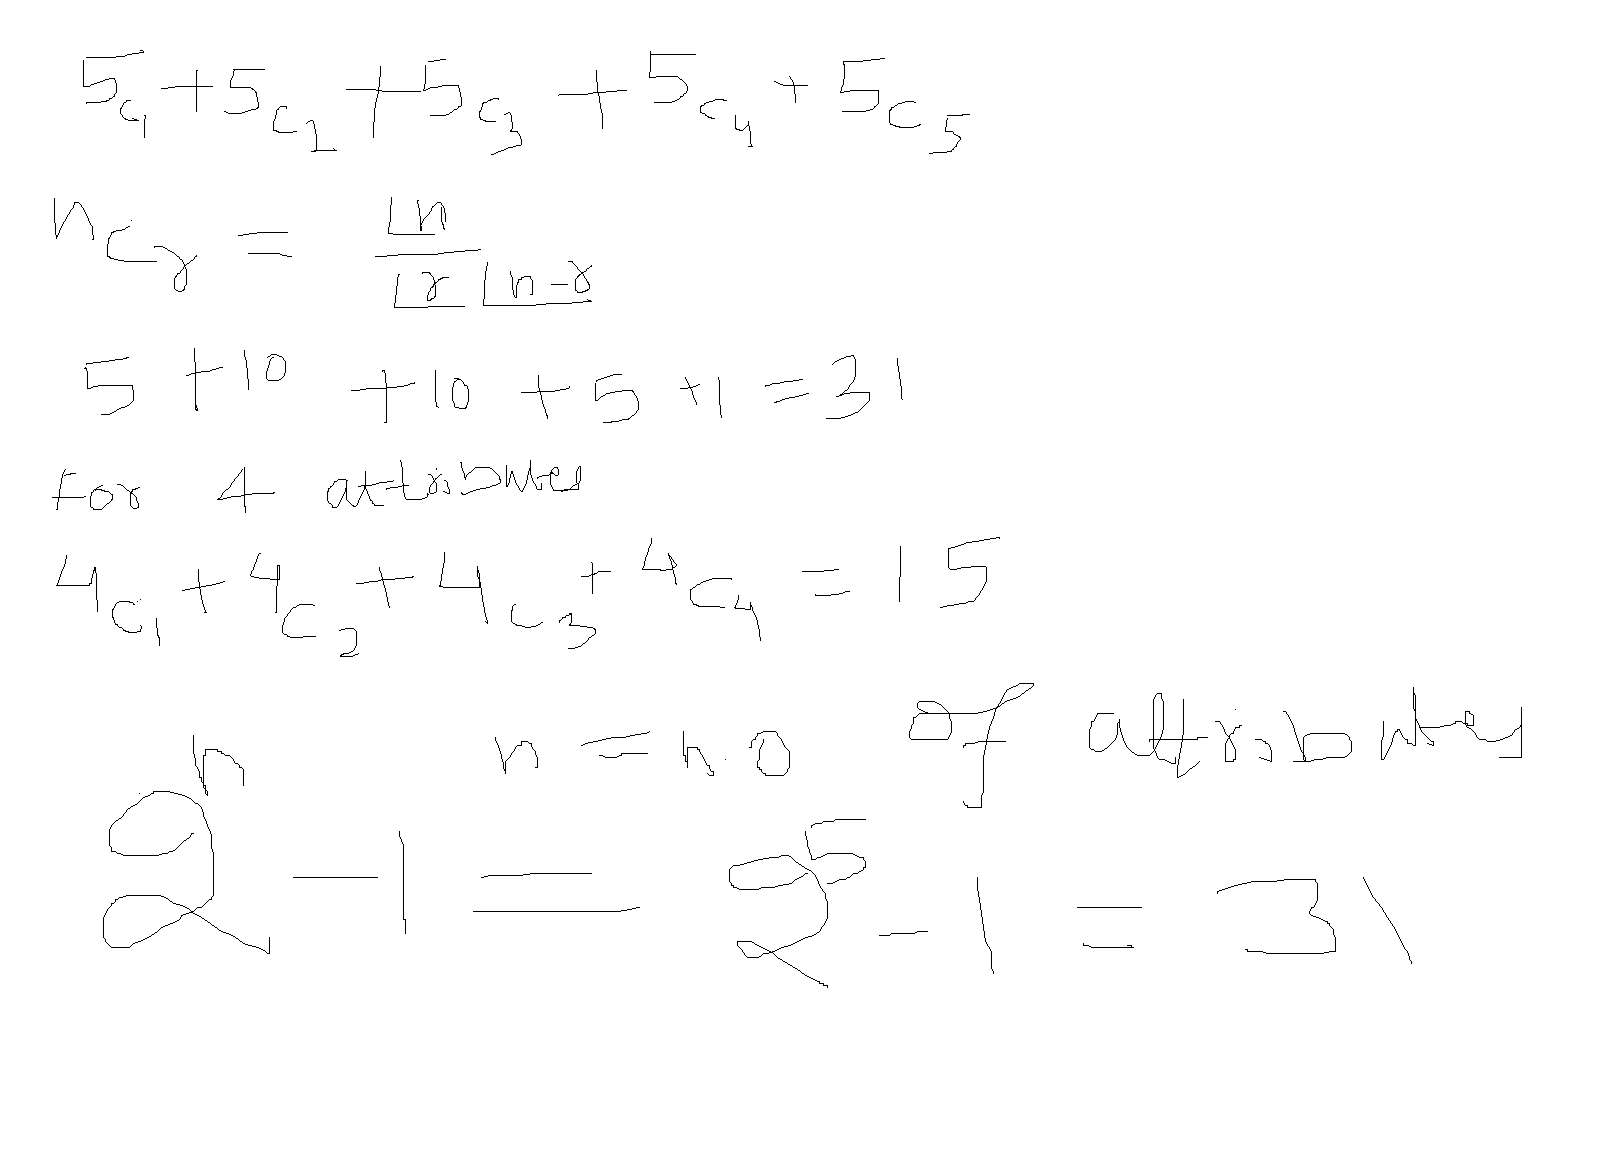 5c1 + 5c2 + 5c3 + 5c4 + 5c5
ncr = ⌊n / ⌊r ⌊n-r
5 + 10 + 10 + 5 + 1 = 31
For 4 attributes
4c1 + 4c2 + 4c3 + 4c4 = 15
n = n.o of attributes
2^n - 1 = 2^5 - 1 = 31